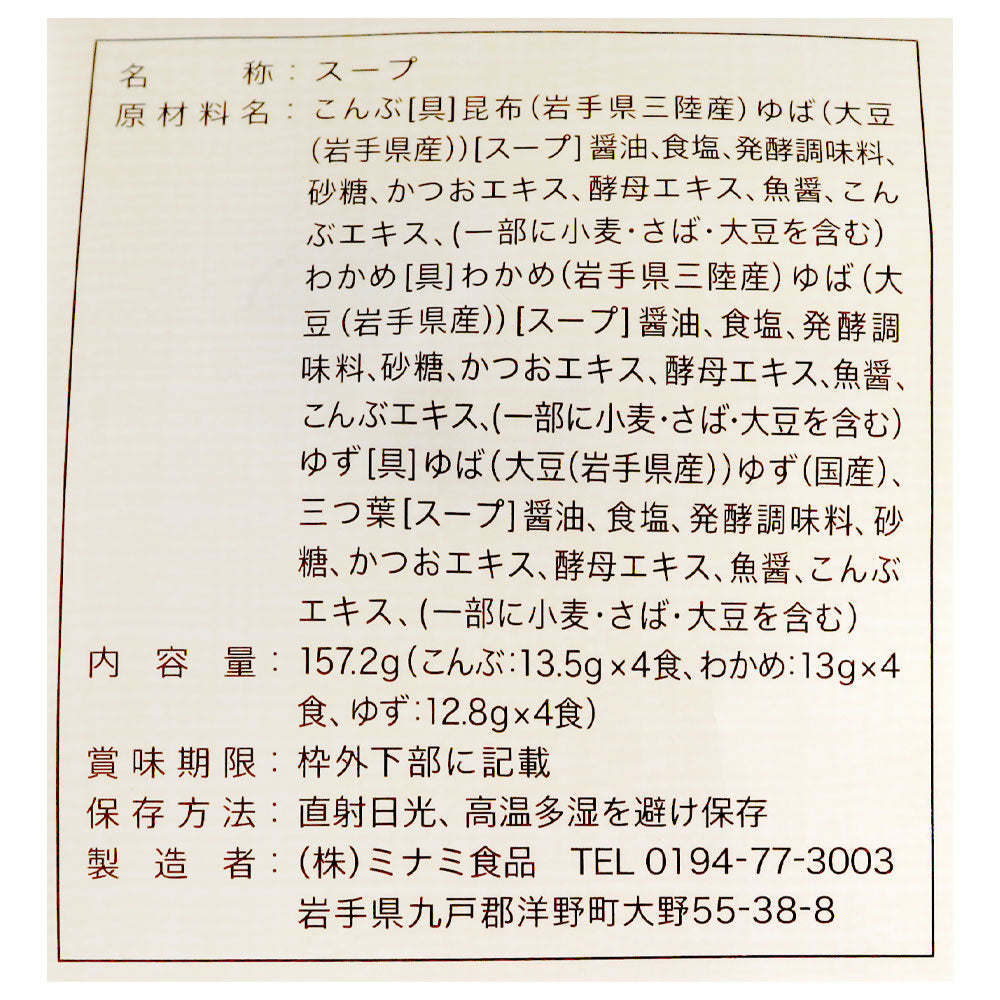 名称：スープ
原材料名：こんぶ[具]昆布(岩手県三陸産)ゆば(大豆
(岩手県産))[スープ]醤油、食塩、発酵調味料、
砂糖、かつおエキス、酵母エキス、魚醤、こん
ぶエキス、(一部に小麦・さば・大豆を含む)
わかめ[具]わかめ(岩手県三陸産)ゆば(大
豆(岩手県産))[スープ]醤油、食塩、発酵調
味料、砂糖、かつおエキス、酵母エキス、魚醤、
こんぶエキス、(一部に小麦・さば・大豆を含む)
ゆず[具]ゆば(大豆(岩手県産))ゆず(国産)、
三つ葉[スープ]醤油、食塩、発酵調味料、砂
糖、かつおエキス、酵母エキス、魚醤、こんぶ
エキス、(一部に小麦・さば・大豆を含む)
内容量：157.2g(こんぶ:13.5g×4食、わかめ:13g×4
食、ゆず:12.8g×4食)
賞味期限：枠外下部に記載
保存方法：直射日光、高温多湿を避け保存
製造者：(株)ミナミ食品 TEL 0194-77-3003
岩手県九戸郡洋野町大野55-38-8